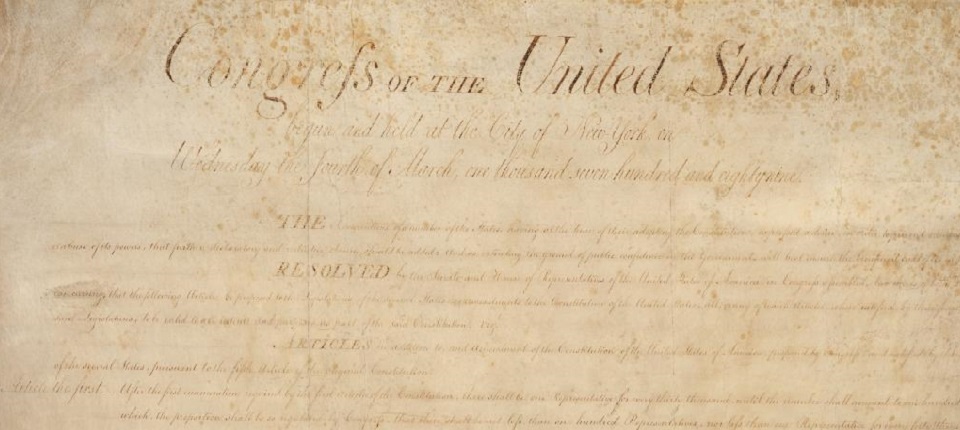 Congreſs OF THE United States,
begun and held at the City of New-York, on
Wednesday the fourth of March, one thousand seven hundred and eighty nine.
THE Conventions of a number of the States, having at the time of their adopting the Constitution, expressed a desire, in order to prevent
abuse of its powers, that further declaratory and restrictive clauses should be added: And as extending the ground of public confidence in the Government, will best ensure the beneficent ends of
RESOLVED by the Senate and House of Representatives of the United States of America, in Congress assembled, two thirds of
concurring, that the following Articles be proposed to the Legislatures of the several States, as amendments to the Constitution of the United States, all, or any of which Articles, when ratified by three fourths
said Legislatures, to be valid to all intents and purposes, as part of the said Constitution; vizt.
ARTICLES in addition to, and Amendment of the Constitution of the United States of America, proposed by Congress, and ratified by the
of the several States, pursuant to the fifth Article of the original Constitution.
Article the first. After the first enumeration required by the first Article of the Constitution, there shall be one Representative for every thirty thousand, until the number shall amount to one hundred,
which, the proportion shall be so regulated by Congress, that there shall be not less than one hundred Representatives, nor less than one Representative for every forty thousand